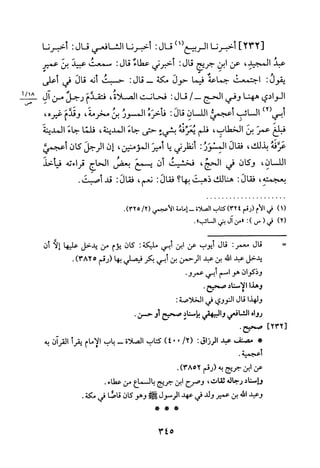 [٢٣٢] أخبرنا الربيع(١) قال: أخبرنا الشافعي قال: أخبرنا
عبدُ المجيدِ، عن ابنِ جريجٍ قال: أخبرني عطاءٌ قال: سمعتُ عبيدَ بنَ عميرٍ
يقولُ: اجتمعتْ جماعةٌ فيما حولَ مكةَ – قال: حسبتُ أنه قالَ في أعلى
الوادي ههنا وفي الحج – / قال: فحانتِ الصلاةُ، فتقدَّمَ رجلٌ منْ آلِ
١/١٨
ص
أبي(٢) السائبِ أعجميُّ اللسانِ قالَ: فأخرَهُ المسورُ بنُ مخرمةَ، وقدَّمَ غيره،
فبلغَ عمرَ بنَ الخطابِ، فلم يُعَرِّفْهُ بشيءٍ حتى جاءَ المدينةَ، فلمَّا جاءَ المدينةَ
عَرَّفَهُ بذلك، فقالَ المِسْوَرُ: أنظرني يا أميرَ المؤمنين، إن الرجلَ كان أعجميَّ
اللسانِ، وكان في الحجِّ، فخشيتُ أن يسمعَ بعضُ الحاجِ قراءته فيأخذَ
بعجمتِهِ، فقالَ: هنالك ذهبتَ بها؟ فقالَ: نعم، فقالَ: قد أصبتَ.
(١) في الأم (رقم ٣٢٤) كتاب الصلاة – إمامة الأعجمي (٢/ ٣٢٥).
(٢) في (س): «من آل بني السائب».
= قال معمر: قال أيوب عن ابن أبي مليكة: كان يؤم من يدخل عليها إلاَّ أن
يدخل عبد الله بن عبد الرحمن بن أبي بكر فيصلي بها (رقم ٣٨٢٥).
وذكوان هو اسم أبي عمرو.
وهذا الإسناد صحيح.
ولهذا قال النووي في الخلاصة:
رواه الشافعي والبيهقي بإسنادٍ صحيح أو حسن.
[٢٣٢] صحيح.
* مصنف عبد الرزاق: (٢/ ٤٠٠) كتاب الصلاة – باب الإمام يقرأ القرآن به
أعجمية.
عن ابن جريج به (رقم ٣٨٥٢).
وإسناد رجاله ثقات، وصرح ابن جريج بالسماع من عطاء.
وعبد الله بن عمير ولد في عهد الرسول ﷺ وهو كان قاصًّا في مكة.
* * *
٣٤٥